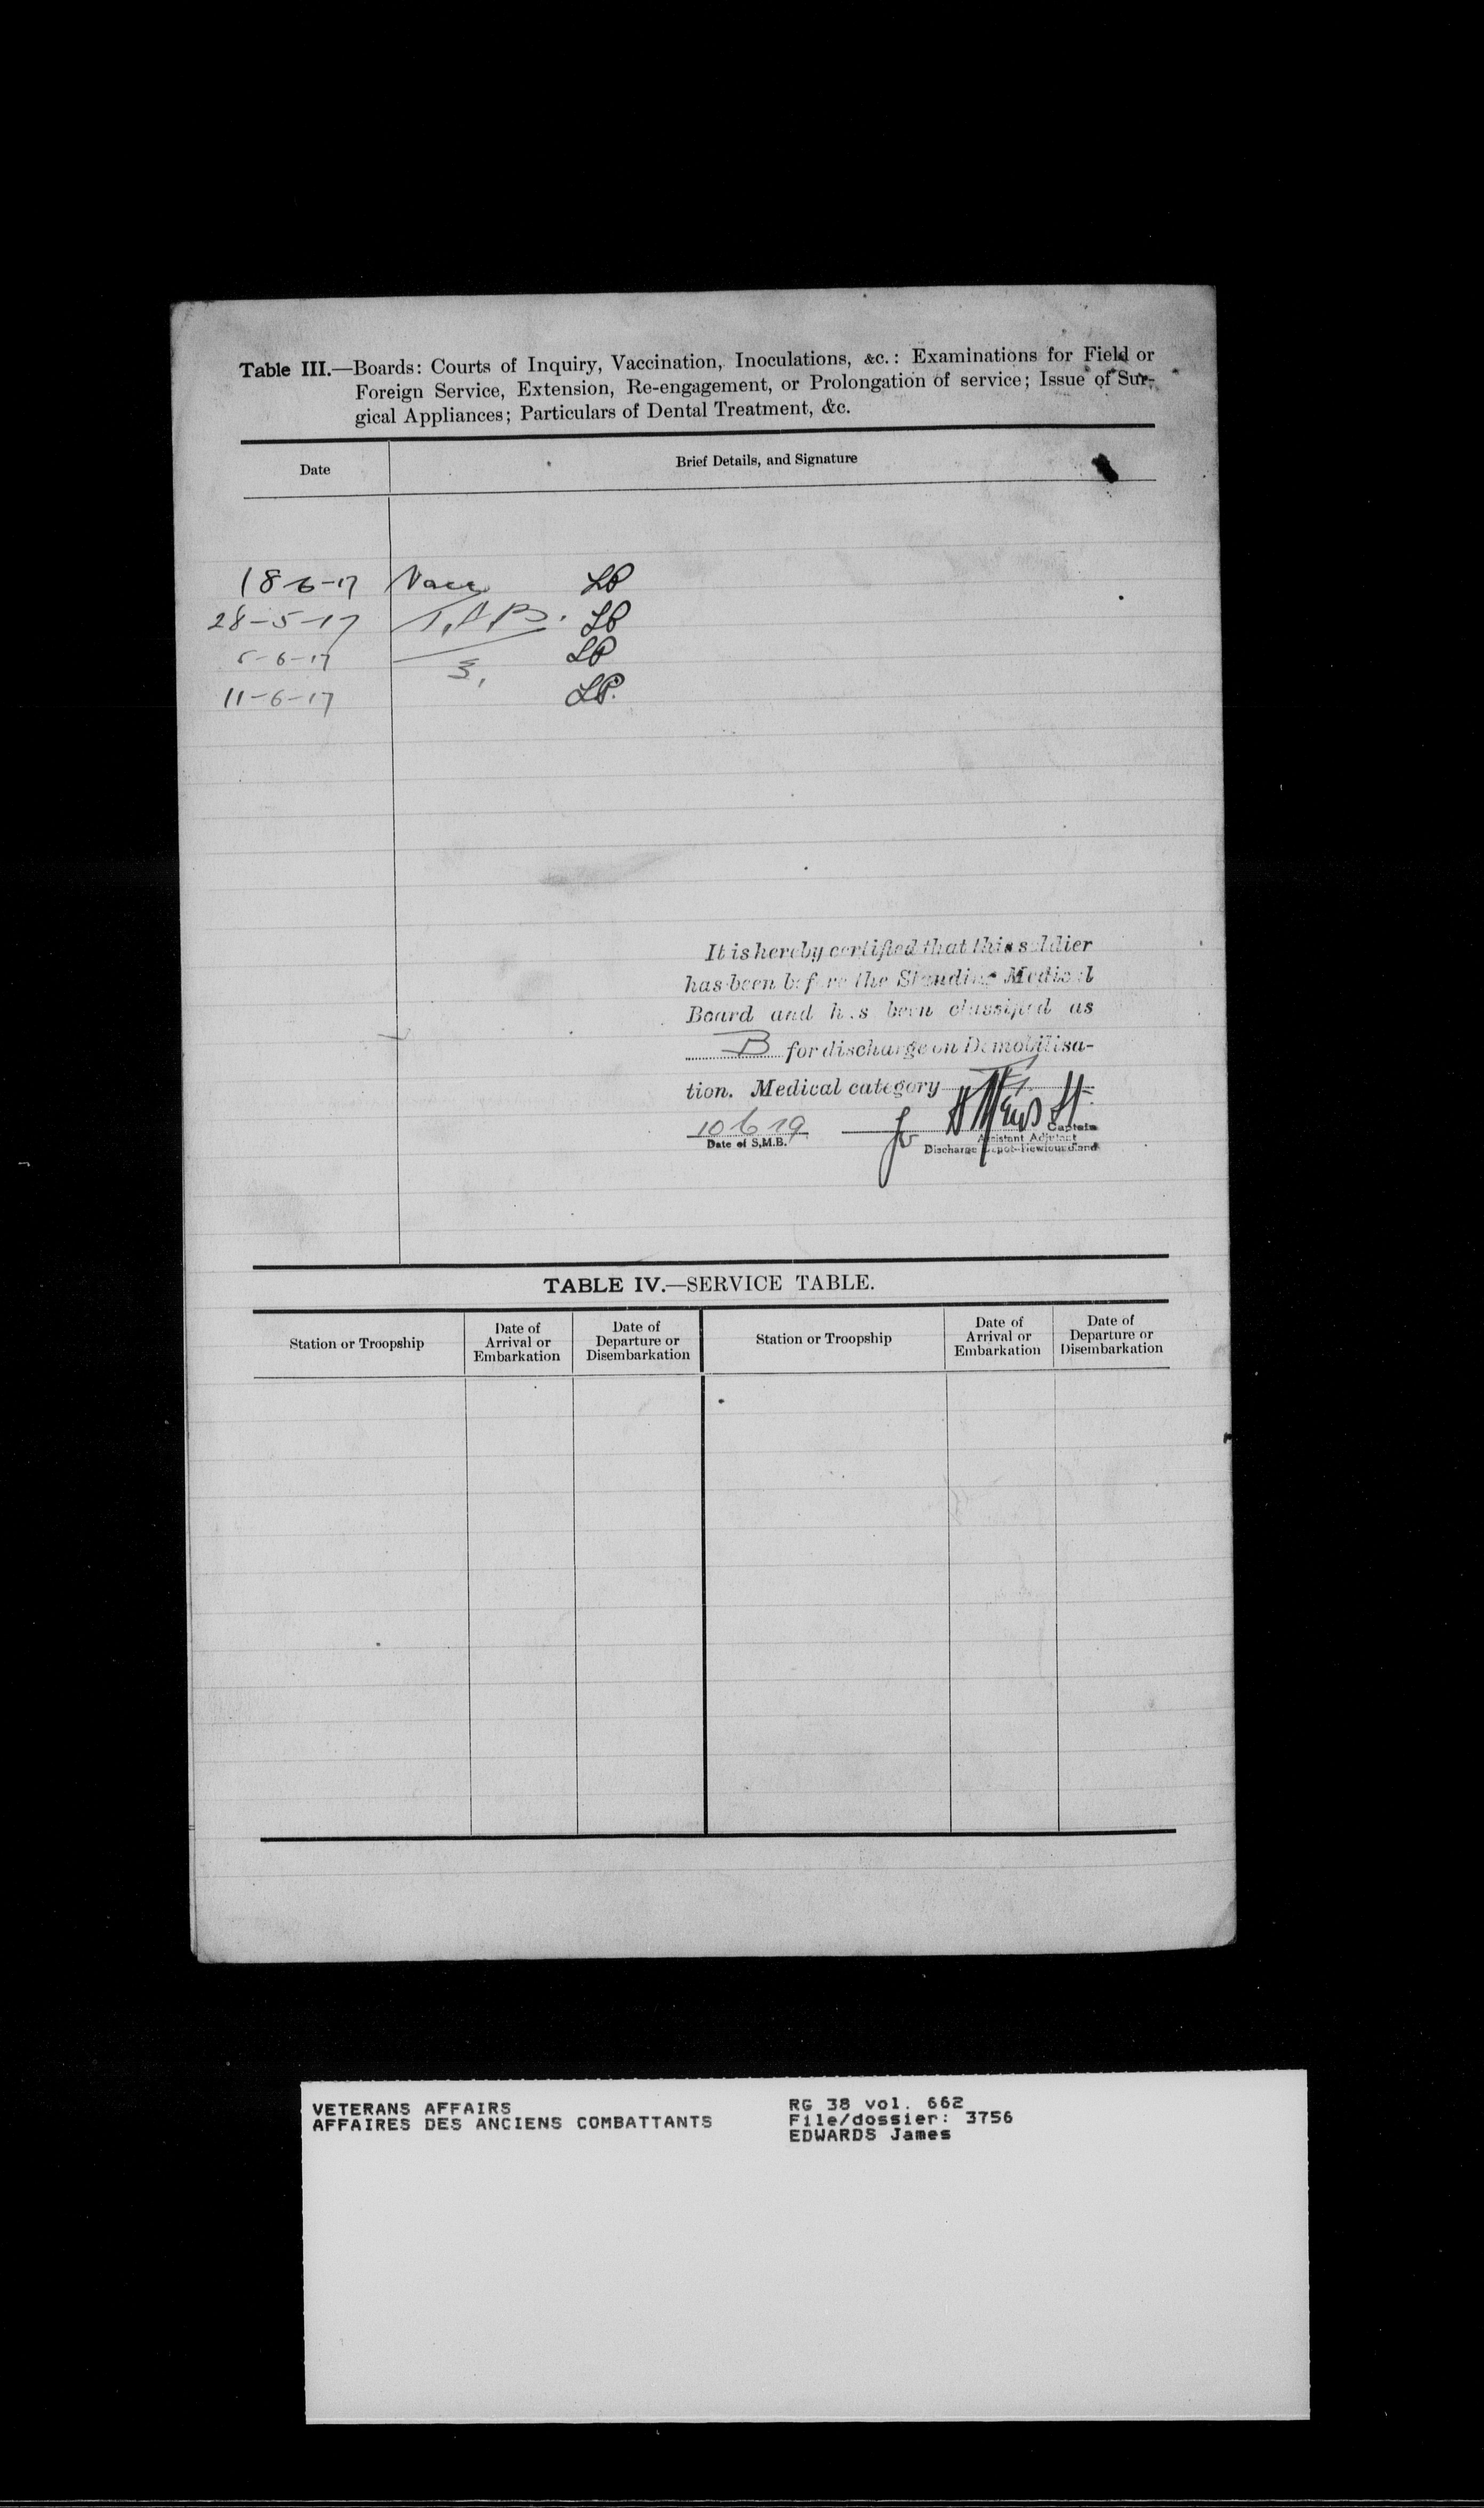 Table III.—Boards: Courts of Inquiry, Vaccination, Inoculations, &c.: Examinations for Field or
Foreign Service, Extension, Re-engagement, or Prolongation of service; Issue of Sur-
gical Appliances; Particulars of Dental Treatment, &c.
Date Brief Details, and Signature
18-6-17 Vacc LP
28-5-17 T.A.B. LP
5-6-17 LP
11-6-17 LP.
It is hereby certified that this soldier
has been before the Standing Medical
Board and has been classified as
B for discharge on Demobilisa-
tion. Medical category
10 6 19 for
Captain
Date of S.M.B. Assistant Adjutant
Discharge Depot-Newfoundland
TABLE IV.—SERVICE TABLE.
Station or Troopship Date of Arrival or Embarkation Date of Departure or Disembarkation Station or Troopship Date of Arrival or Embarkation Date of Departure or Disembarkation
VETERANS AFFAIRS RG 38 vol. 662
AFFAIRES DES ANCIENS COMBATTANTS File/dossier: 3756
EDWARDS James